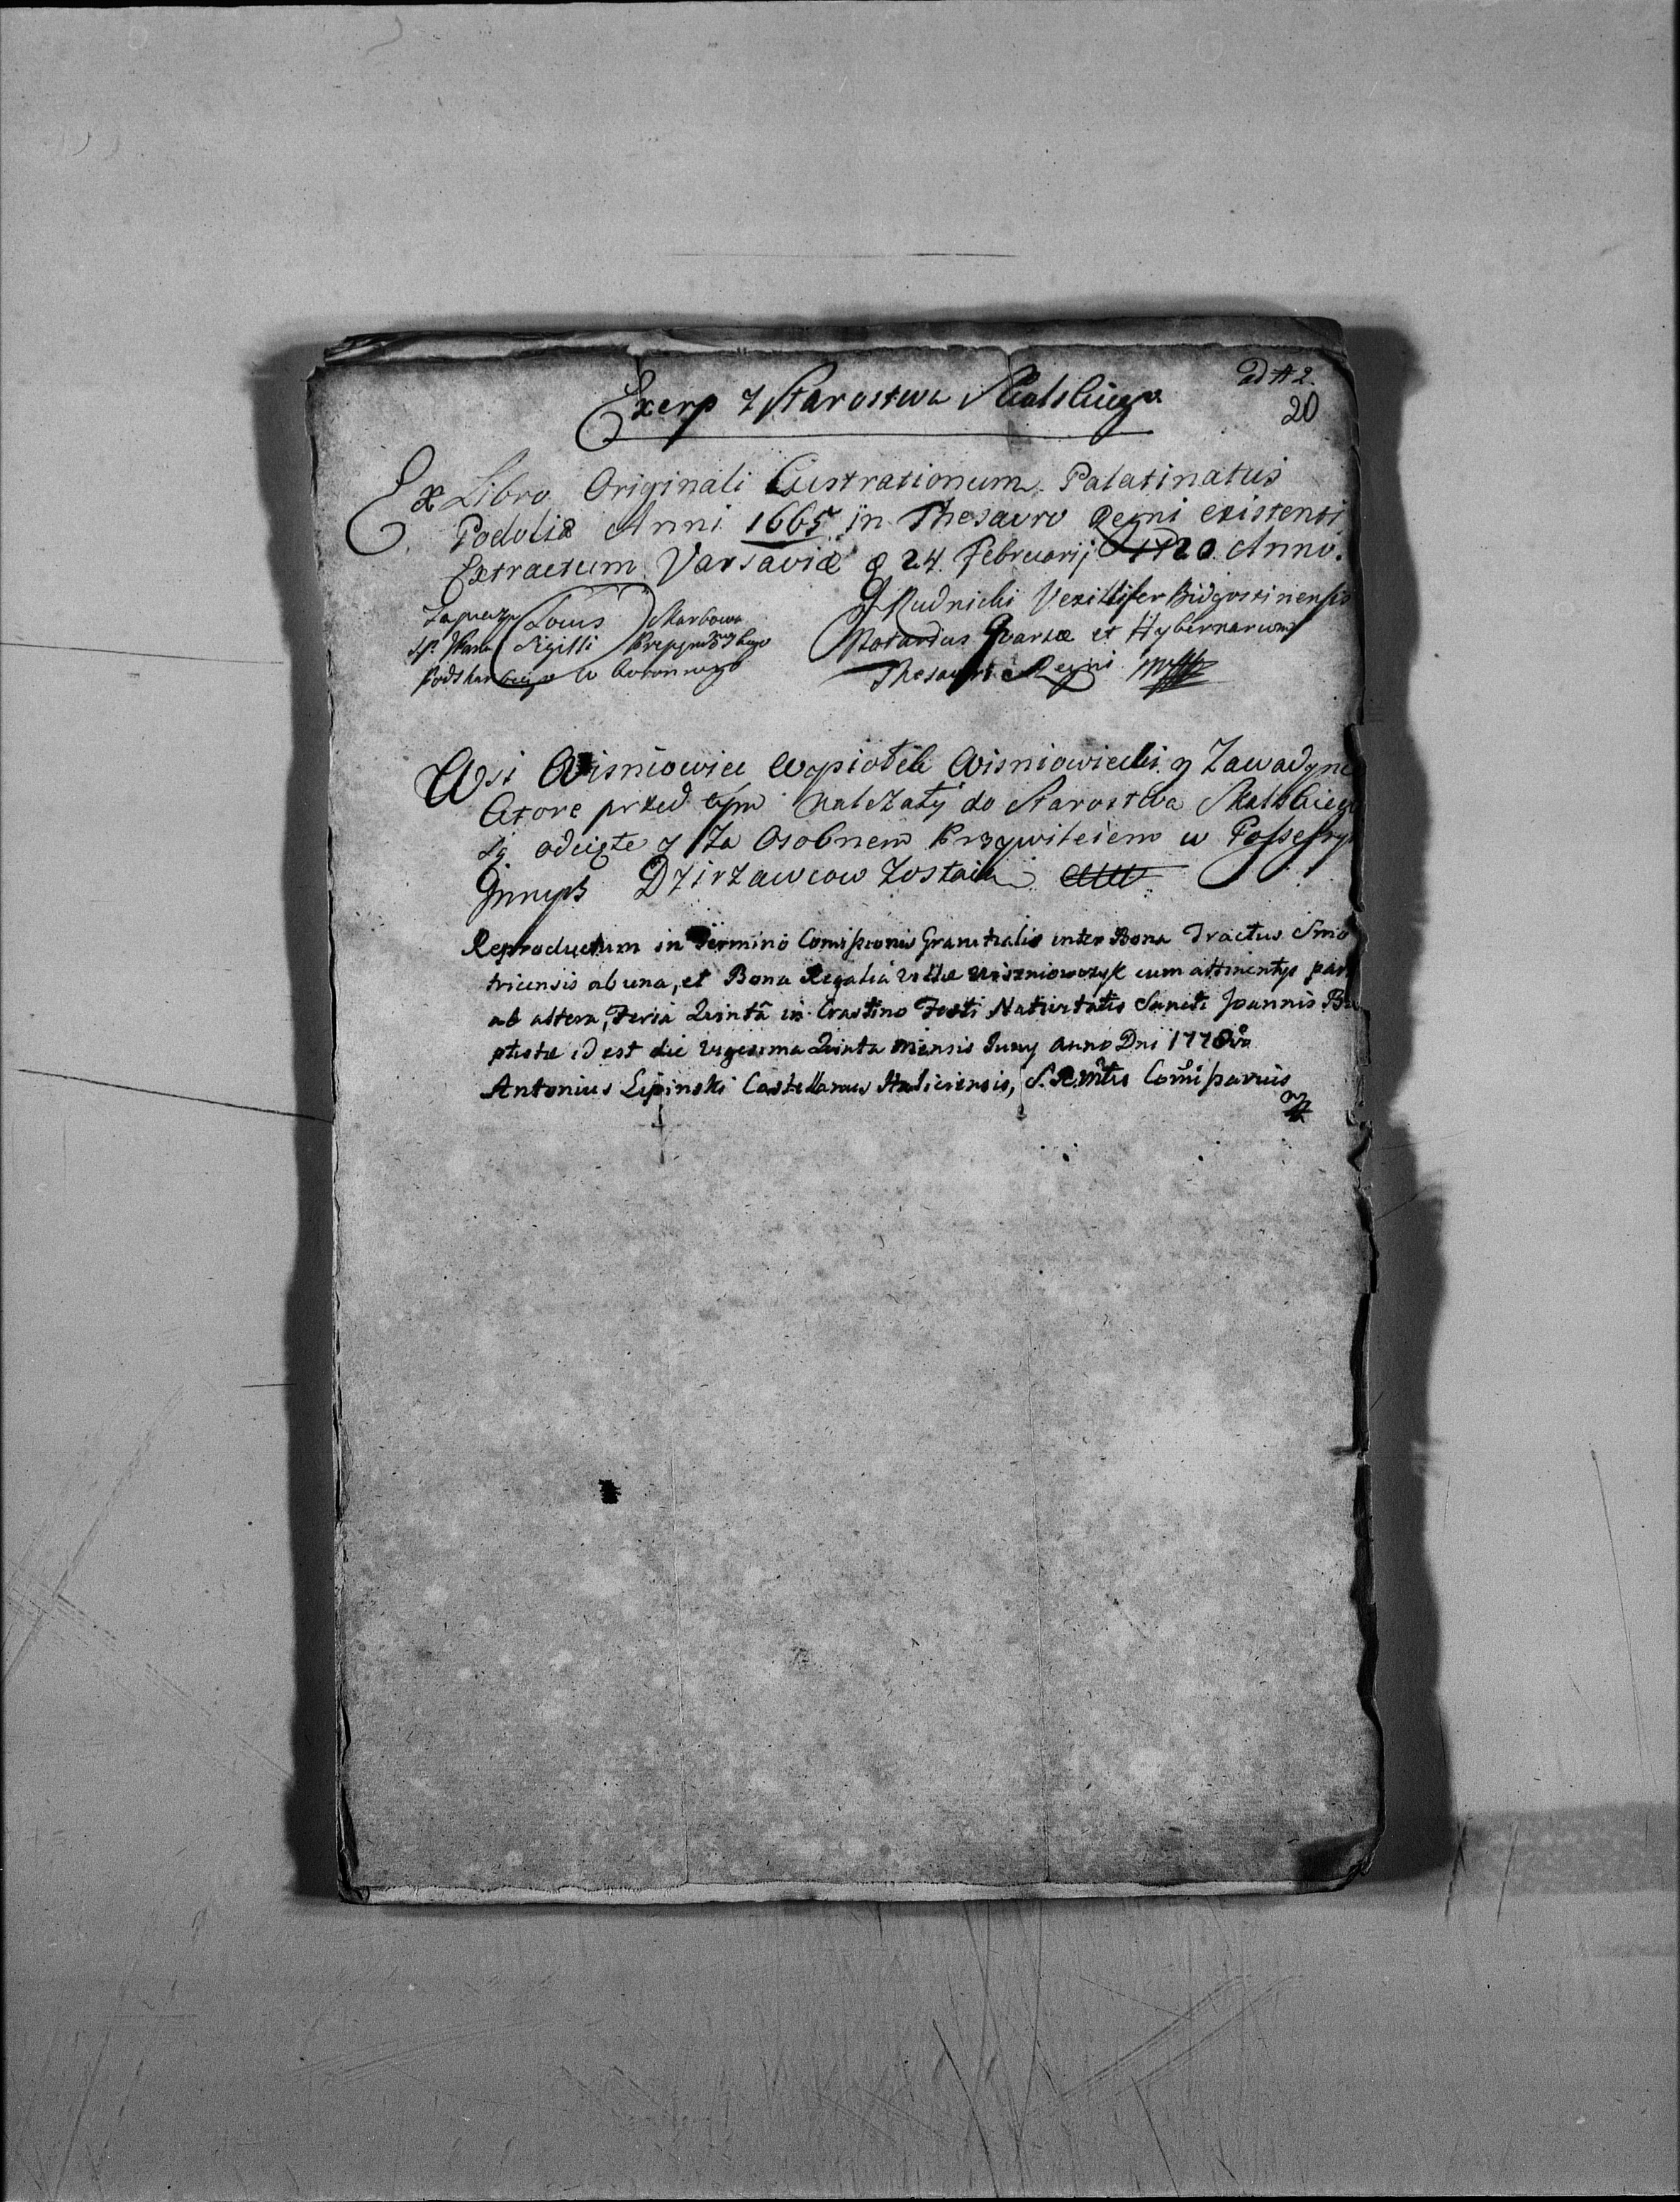 ad # 2.
20
Exerp z Starostwa Skalskiego
Ex Libro Originali Lustrationum Palatinatus
Podoliæ Anni 1665 in Thesauro Regni existenti
Extractum Varsaviæ d 24 Februarij 1720 Anno.
Locus Skarbowa
Sigilli
Podskarbiego Koronnego
Rudnicki Vexillifer Bidgostinensis
Notarius Quartæ et Hybernarum
Thesauri Regni mpp
Wsi Wisniowiec Wypiołek Wisniowiecki y Zawadyne
Ktore przed tym nalezały do Starostwa Skalskiego
Są odcięte y Za Osobnem Przywileiem w Possessyi
Jnnych Dzirzawcow Zostaią
Reproductum in Termino Comissionis Granitialis inter Bona Tractus Smo
tricensis ab una, et Bona Regalia Villæ Wiszniowczyk cum attinentijs par
ab altera, Feria Quintâ in Crastino Festi Nativitatis Sancti Joannis Ba
ptistæ id est die vigesima Quinta mensis Juny anno Dni 1778o
Antonius Lipinski Castellanus Haliciensis, S. R. Mtis Comissarius
mp